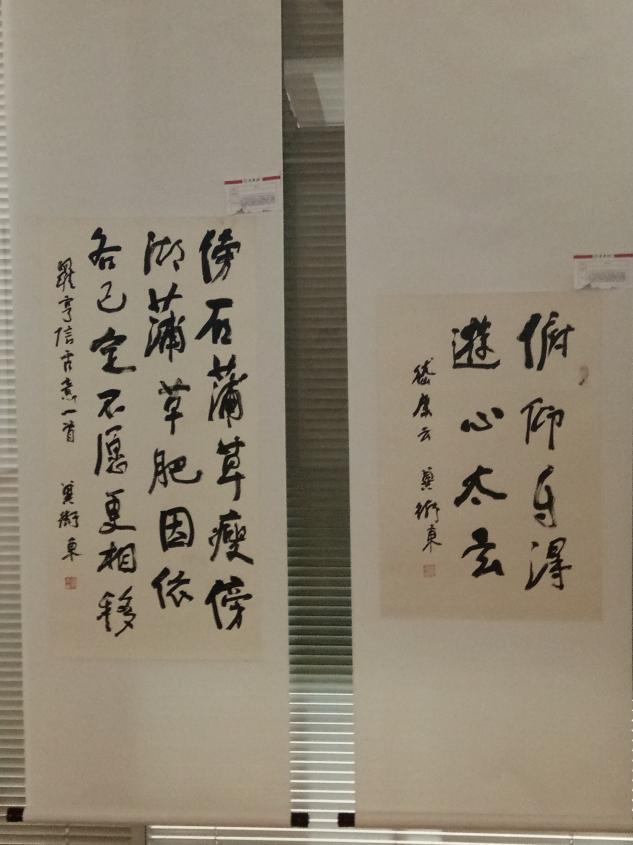 俯仰自得
遊心太玄
嵇康云 衛東
傍石蒲草瘦傍
湖蒲草肥因依
各已定不愿更相移
羅亨信古意一首 衛東